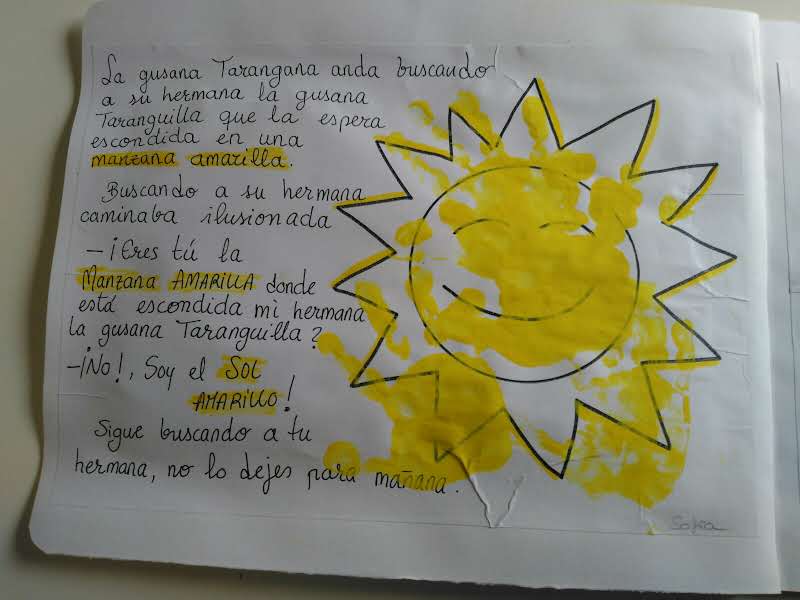 La gusana Tarangana anda buscando
a su hermana la gusana
Taranguilla que la espera
escondida en una
manzana amarilla.
Buscando a su hermana
caminaba ilusionada
-¡Eres tú la
Manzana AMARILLA donde
está escondida mi hermana
la gusana Taranguilla?
-¡No!, Soy el SOL
AMARILLO!
Sigue buscando a tu
hermana, no lo dejes para mañana.
Sofia